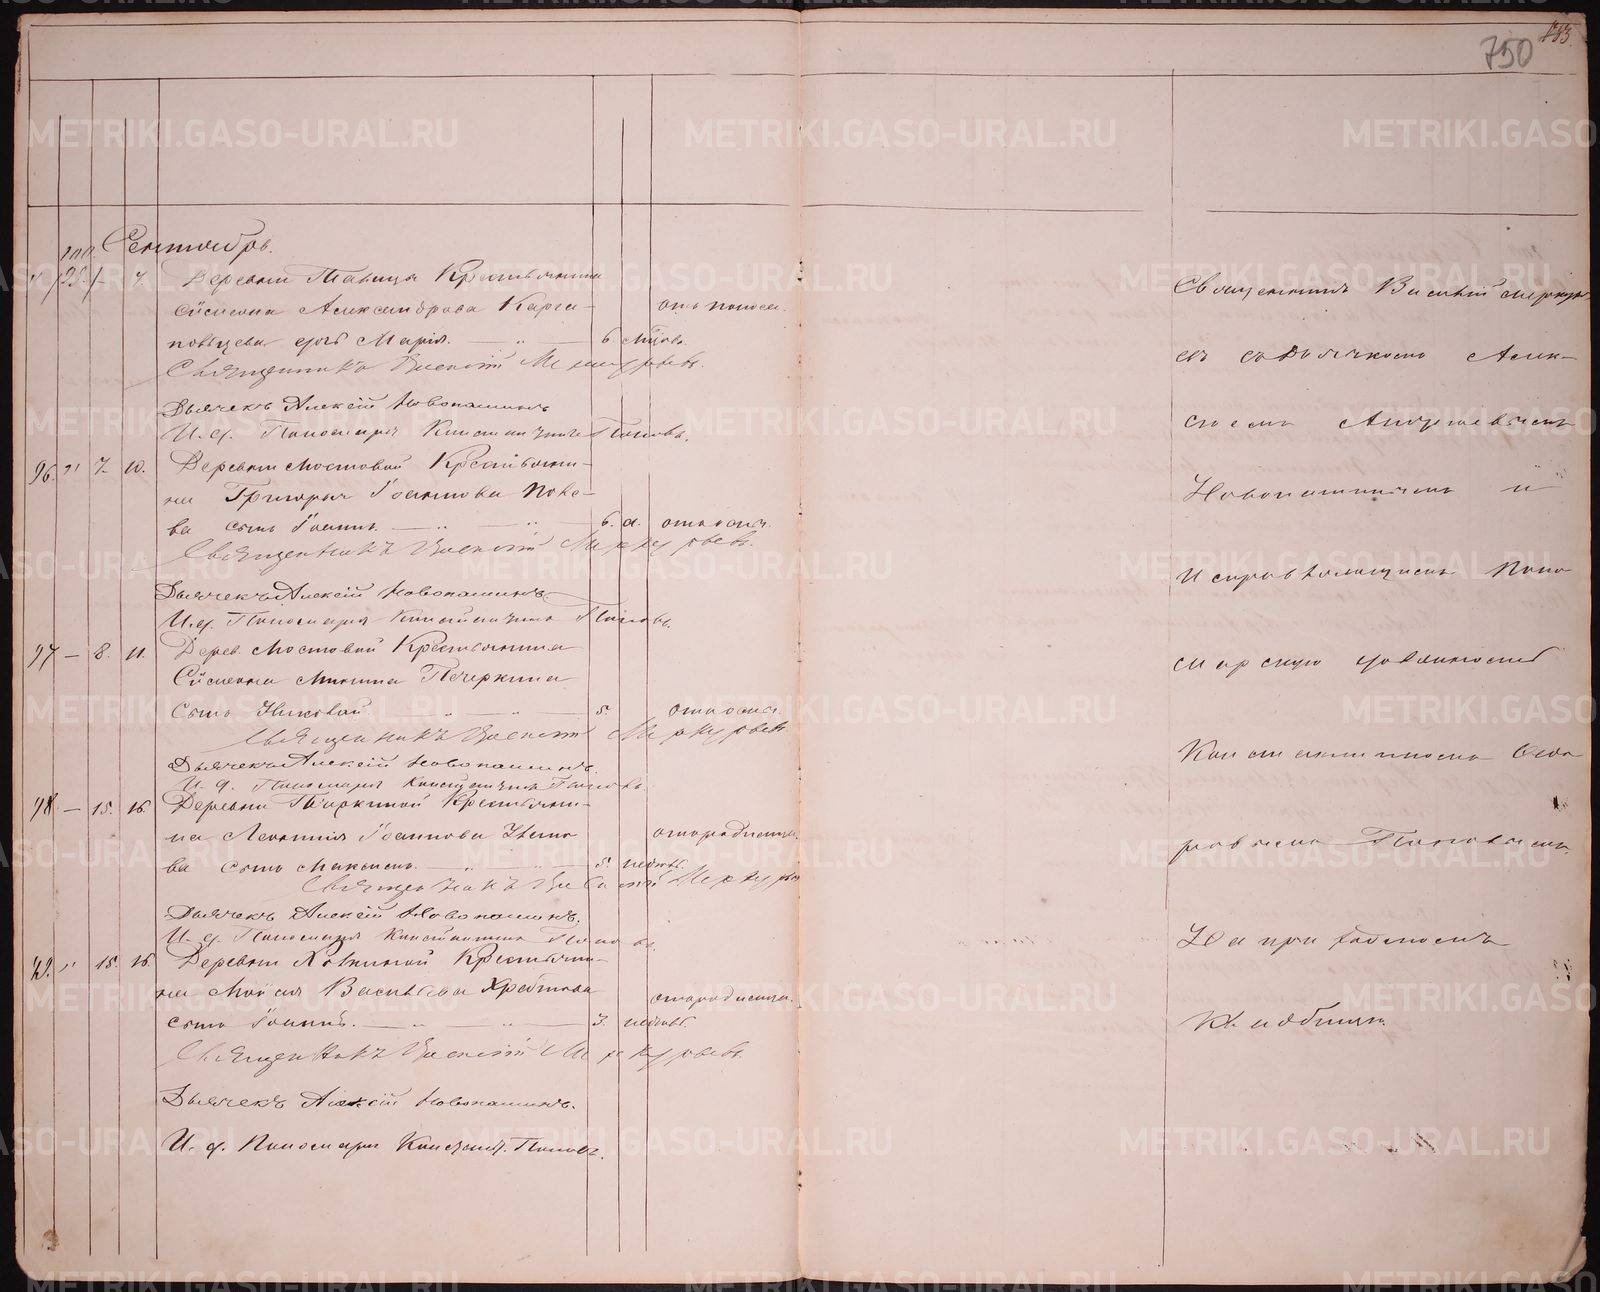 750
Сентябрь.
Деревни Крестьянина
Симеона Александрова Карга-
польцева дочь Марія. 6. отъ поноса.
Священникъ Василій Меркурьевъ.
Дьячекъ Алексій Новопашинъ
И. д. Пономаря Константинъ Поповъ.
96. " 7. 10. Деревни Мостовой Крестьяни-
на Григорья Іоаннова
ва сынъ Іоаннъ. 6. отъ оспы.
Священникъ Василій Меркурьевъ.
Дьячекъ Алексій Новопашинъ.
И. д. Пономаря Константинъ Поповъ.
97 — 8. 11. Дерев. Мостовой Крестьянина
Симеона Минина Печеркина
сынъ Николай 5. отъ оспы
Священникъ Василій Меркурьевъ
Дьячекъ Алексій Новопашинъ.
И. д. Пономаря Константинъ Поповъ.
98 — 15. 16. Деревни Крестьяни-
на Леонтія Іоаннова отъ родимца.
ва сынъ Максимъ. 5. недѣль
Священникъ Василій Меркурьев
Дьячекъ Алексій Новопашинъ.
И. д. Пономаря Константинъ Поповъ.
" 15. 16. Деревни Крестьяни-
на Васильева отъ родимца.
сынъ Іоаннъ. 3. недѣль.
Священникъ Василій Меркурьевъ.
Дьячекъ Алексій Новопашинъ.
И. д. Пономаря Констант. Поповъ.
Священникъ Василій Меркурь-
евъ съ Дьячкомъ Алек-
сіемъ
Новопашинымъ и
Исправляющимъ Поно-
марскую должность
Константиномъ
Поповымъ.
На приходскомъ
кладбищѣ.
METRIKI.GASO-URAL.RU